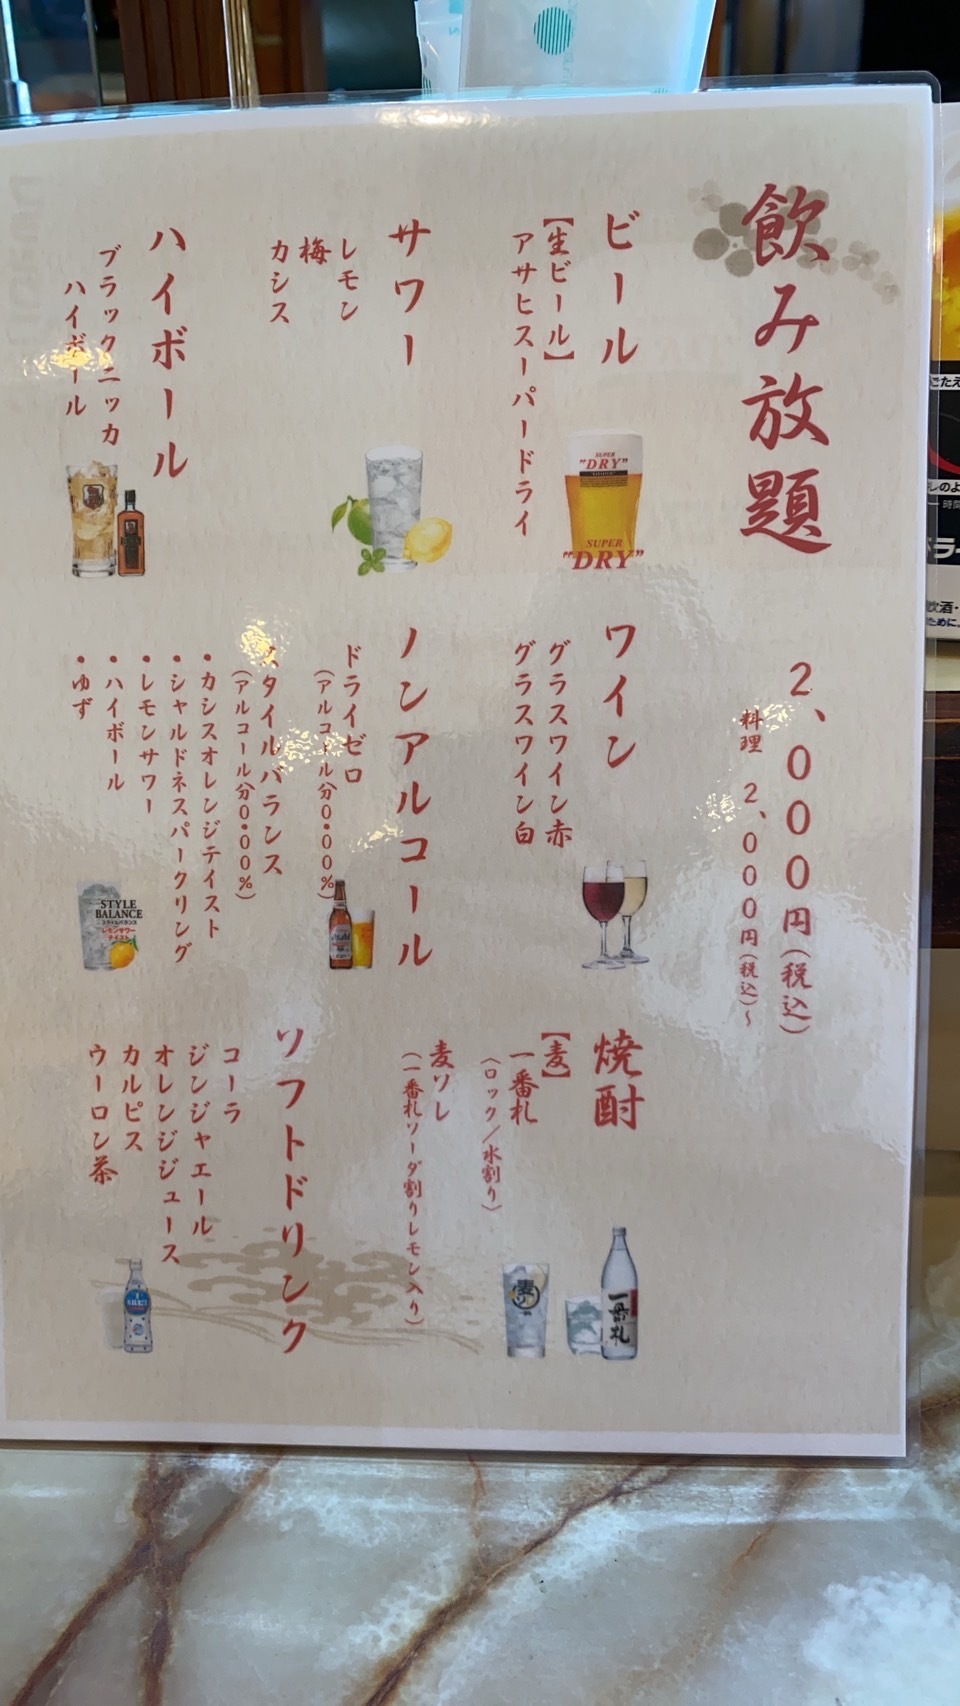 飲み放題
2、000円(税込)
料理 2、000円(税込)~
ビール
【生ビール】
アサヒスーパードライ
SUPER
"DRY"
SUPER
"DRY"
ワイン
グラスワイン赤
グラスワイン白
焼酎
【麦】
一番札
(ロック/水割り)
麦ソレ
(一番札ソーダ割りレモン入り)
一番札
サワー
レモン
梅
カシス
ノンアルコール
ドライゼロ
(アルコール分0.00%)
スタイルバランス
(アルコール分0.00%)
・カシスオレンジテイスト
・シャルドネスパークリング
・レモンサワー
・ハイボール
・ゆず
STYLE
BALANCE
スタイルバランス
レモンサワー
テイスト
ハイボール
ブラックニッカ
ハイボール
ソフトドリンク
コーラ
ジンジャエール
オレンジジュース
カルピス
ウーロン茶